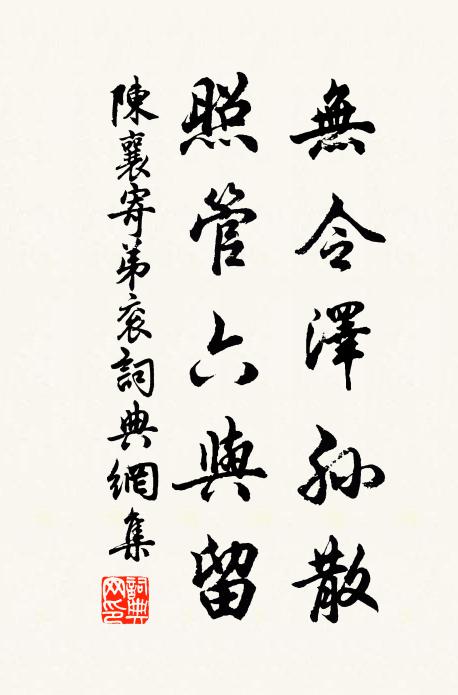 無令澤孙散
照管六與留
陳襄寄弟衮詞典網集
詞典網印